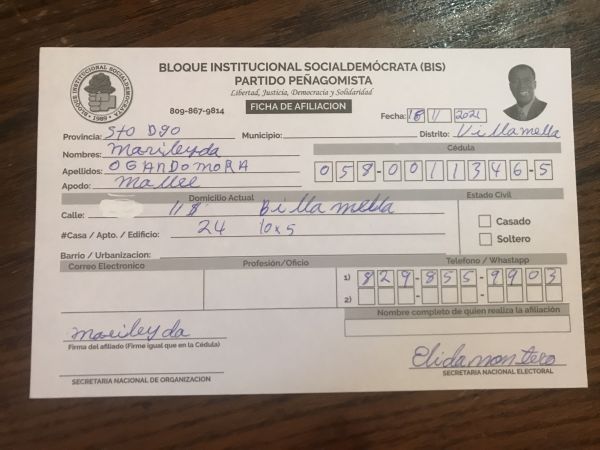 BLOQUE INSTITUCIONAL SOCIALDEMÓCRATA (BIS)
PARTIDO PEÑAGOMISTA
Libertad, Justicia, Democracia y Solidaridad
BLOQUE INSTITUCIONAL SOCIALDEMOCRATA
1989
809-867-9814 FICHA DE AFILIACION Fecha: 18 11 2021
Provincia: Sto Dgo Municipio: Distrito: Villamella
Nombres: Marileyda Cédula
Apellidos: OGANDOMORA 058-0011346-5
Apodo: Mallee
Domicilio Actual Estado Civil
Calle: 11 8 Billa mella
Casado
#Casa / Apto. / Edificio: 24 10x5
Soltero
Barrio / Urbanizacion:
Correo Electronico Profesión/Oficio Telefono / Whastapp
1) 829-855-9903
2)
Nombre completo de quien realiza la afiliación
marileyda
Firma del afiliado (Firme igual que en la Cédula)
Elidamontero
SECRETARIA NACIONAL DE ORGANIZACION SECRETARIA NACIONAL ELECTORAL